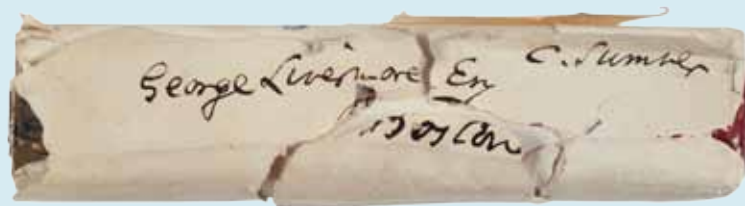 George Livermore Esq C. Sumner
Boston